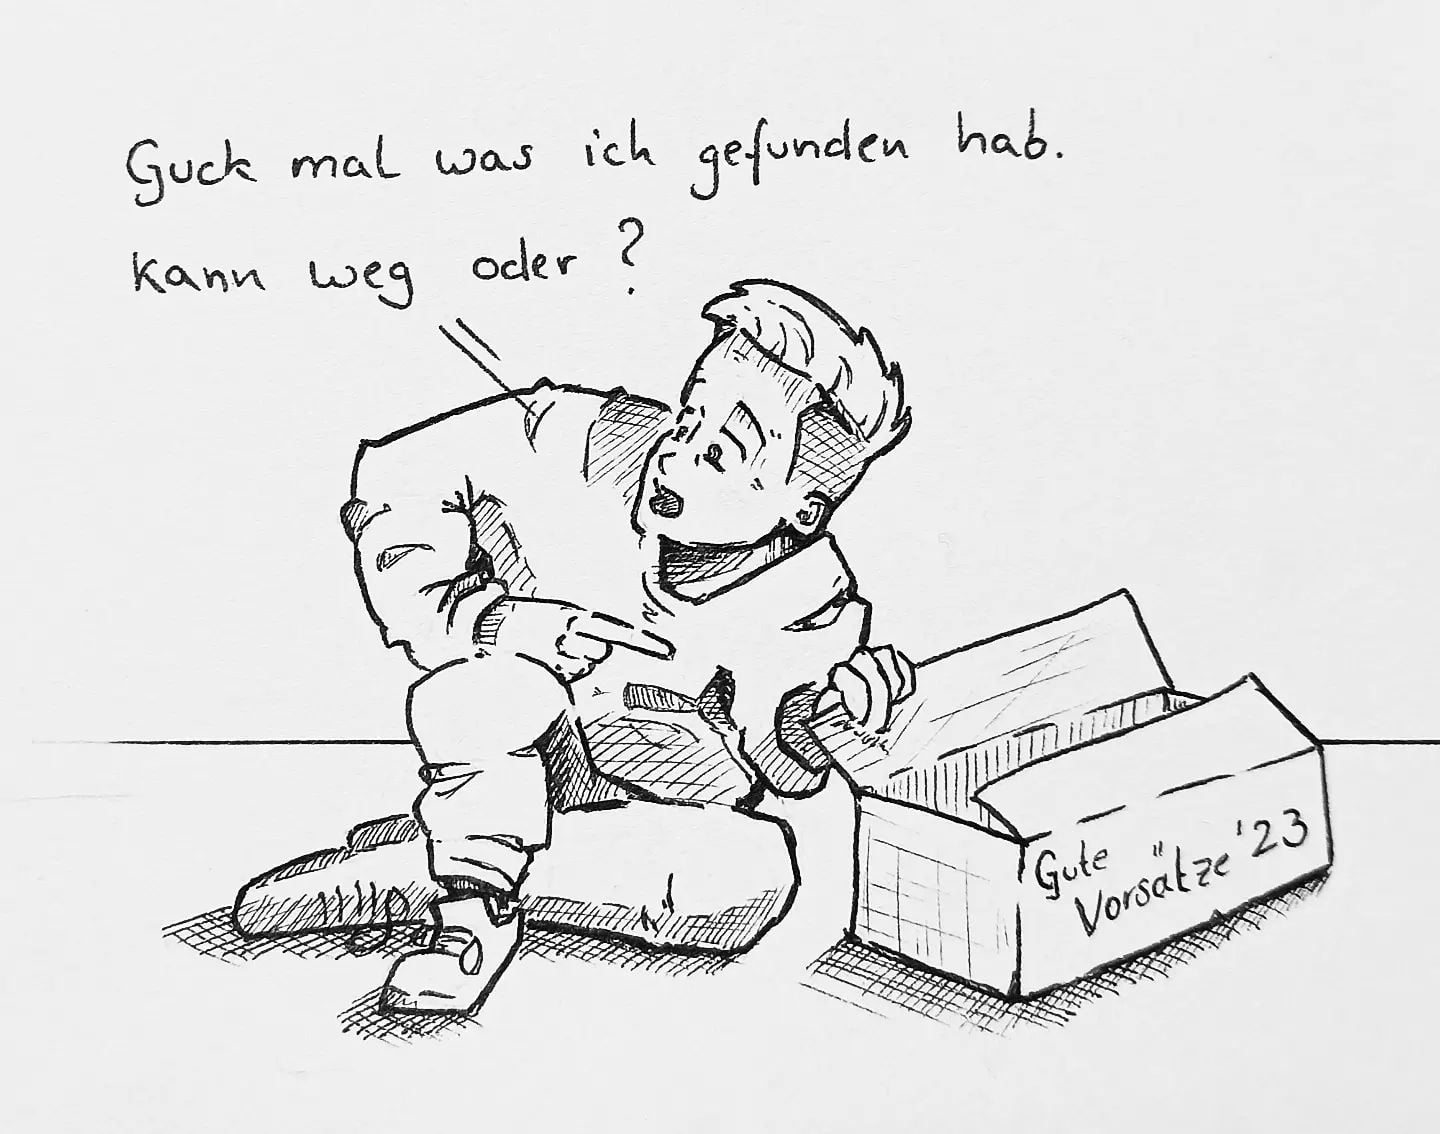 Guck mal was ich gefunden hab.
kann weg oder ?
Gute
Vorsätze '23